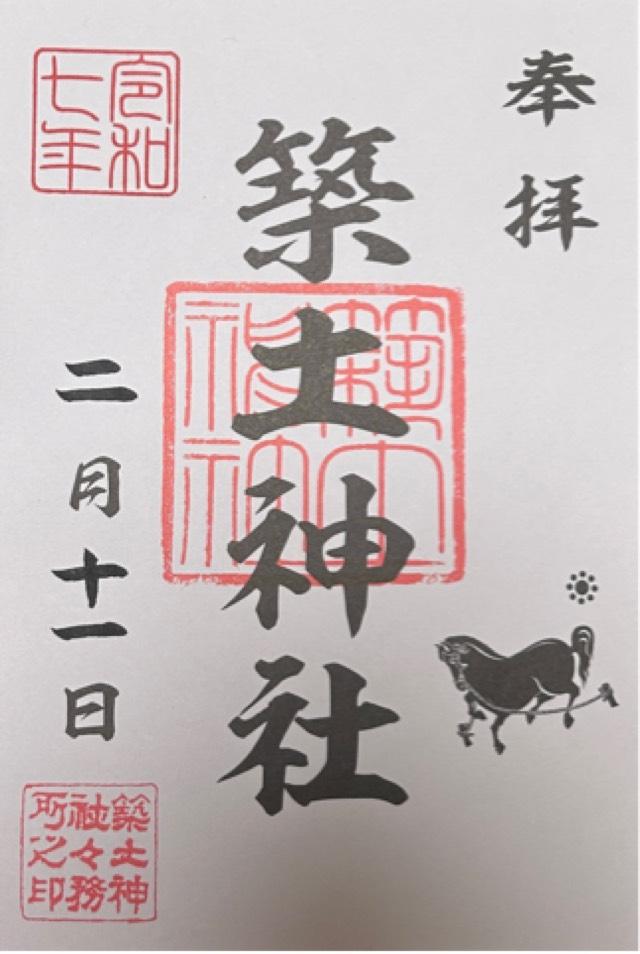 奉拝
築土神社
築土神社
令和
七年
二月十一日
築土神
社々務
所之印